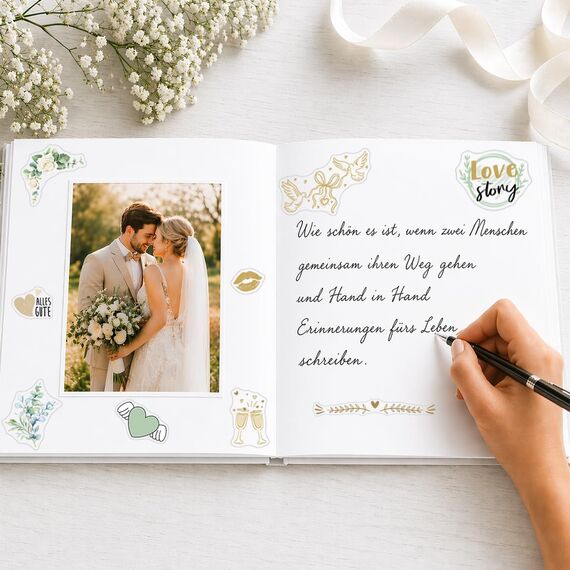 ALLES
GUTE
Love
story
Wie schön es ist, wenn zwei Menschen
gemeinsam ihren Weg gehen
und Hand in Hand
Erinnerungen fürs Leben
schreiben.